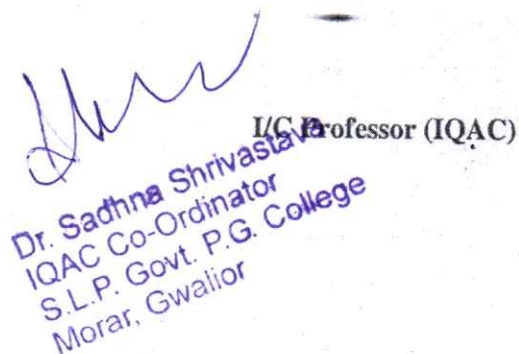 I/C Professor (IQAC)
Dr. Sadhna Shrivastava
IQAC Co-Ordinator
S.L.P. Govt. P.G. College
Morar, Gwalior